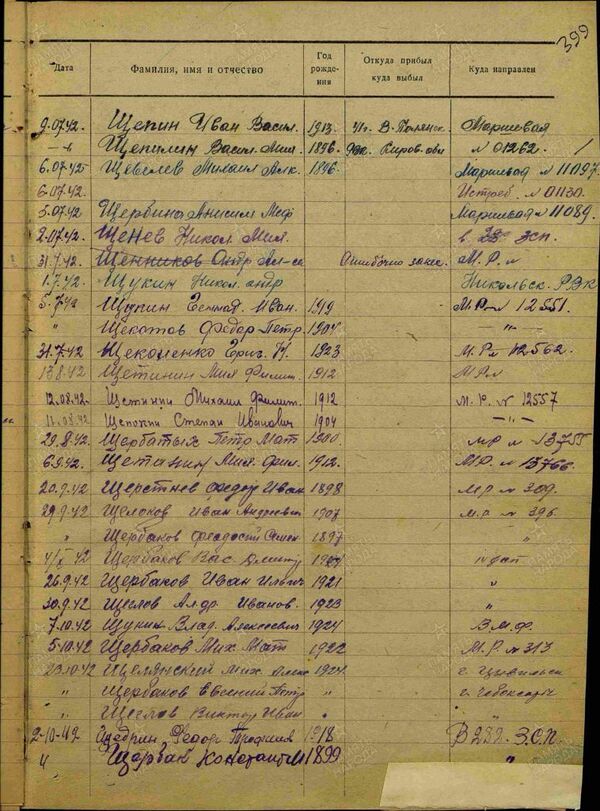 399
Дата Фамилия, имя и отчество Год рожде- ния Откуда прибыл куда выбыл Куда направлен
9.07.42. Щепин Иван Васил. 1913 Маршевая
Щепилин Васил. Мих. 1896 Киров. обл № 01262
6.07.42 Щевелев Михаил Алк. 1896 Маршевая № 11097
6.07.42 Истреб. № 01130.
5.07.42 Щербина Анисим Маршевая № 11089.
2.07.42 Щенев Никол. Мих. в зсп.
31.7.42 Щенников Андр Ал-са Ошибочно занес. М.Р.
1.7.42 Щукин Никол. андр Никольск. РВК
5.7.42 Щупин Геннад. Иван. 1919 М.Р. № 12551.
" Щекотов Федор Петр. 1904 —"—
31.7.42 Щекоченко Григ. 1923 М.Р. № 12562.
13.8.42 Щетинин Мих Филип. 1912 М.Р. №
12.08.42 Щетинин Михаил Филип. 1912 М.Р. № 12557
11.08.42 Степан Иванович 1904 —"—
29.8.42 Щербатых Петр Мат 1900 М.Р. № 13755
6.9.42. Щетинин Мих. Фил. 1912. М.Р. № 13766.
20.9.42 Щерстнев Федор Иван 1898 М.Р. № 309.
29.9.42 Щелоков Иван Андреевич 1907 М.Р. № 396.
" Щербаков Феодосий Семен 1897 "
4/X 42 Щербаков Вас. Дмитр
26.9.42 Щербаков Иван Ильич 1921 "
30.9.42 Щеглов Ал-др. Иванов. 1923 "
7.10.42 Щукин Влад. Алексеевич 1924 В.М.Ф.
5.10.42 Щербаков Мих. Мат 1922 М.Р. № 313
23.10.42 Щелянский Мих. 1924 г. Цивильск
" Щербаков Евгений Петр " г. Чебоксары
" Щеглов Виктор Иван " "
2-10-42 Щедрин Федор Трофим 1918 В 282. З.С.П.
" Щербак Константин 1899 "